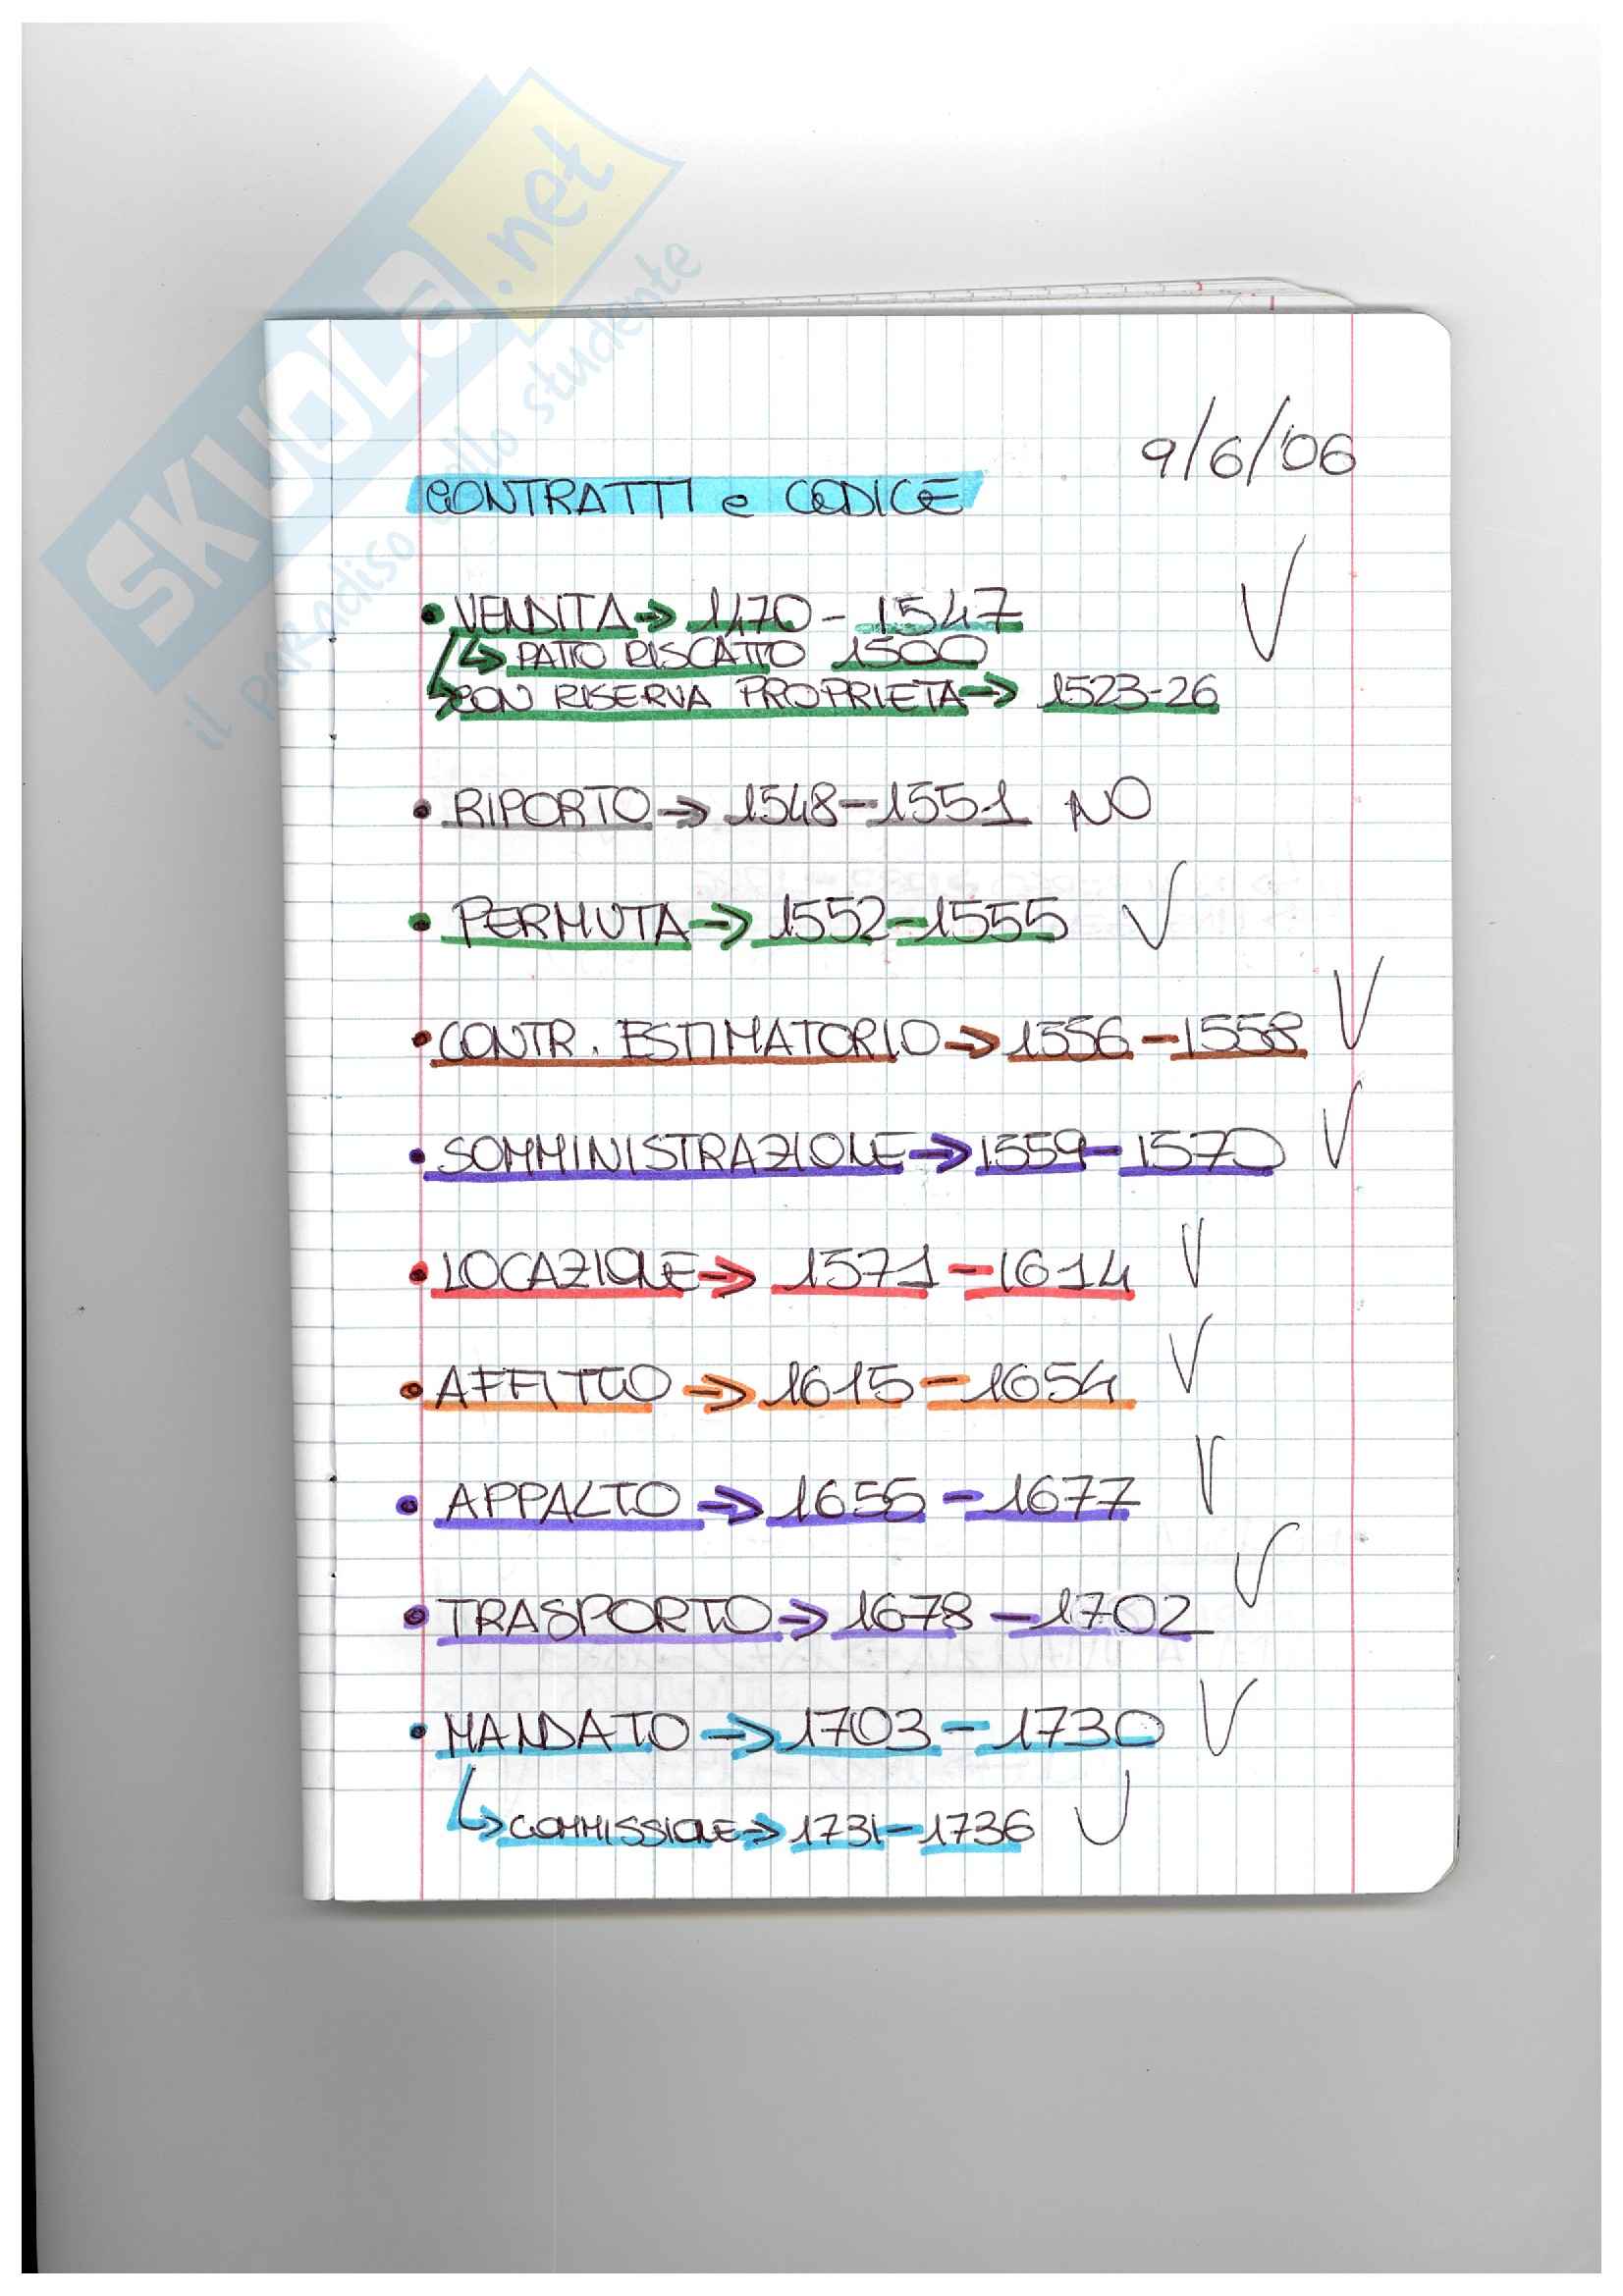 SKUOLA.net
il paradiso dello studente
9/6/'06
CONTRATTI e CODICE
• VENDITA → 1470 - 1547 ✓
↳ PATTO RISCATTO 1500
↳ CON RISERVA PROPRIETA → 1523-26
• RIPORTO → 1548-1551 NO
• PERMUTA → 1552-1555 ✓
• CONTR. ESTIMATORIO → 1556-1558 ✓
• SOMMINISTRAZIONE → 1559-1570 ✓
• LOCAZIONE → 1571-1614 ✓
• AFFITTO → 1615-1654 ✓
• APPALTO → 1655-1677 ✓
• TRASPORTO → 1678-1702 ✓
• MANDATO → 1703-1730 ✓
↳ COMMISSIONE → 1731-1736 ✓